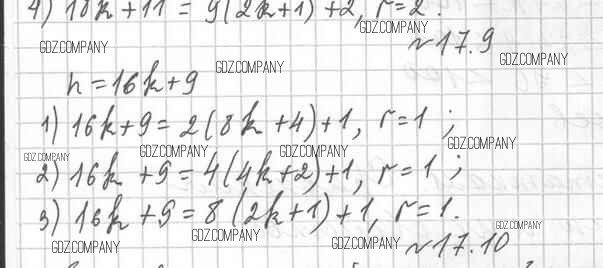 4) 18k+11 = 9(2k+1)+2, r=2.
GDZ.COMPANY
GDZ.COMPANY
№17.9
GDZ.COMPANY
GDZ.COMPANY
n=16k+9
1) 16k+9=2(8k+4)+1, r=1;
GDZ.COMPANY
GDZ.COMPANY
GDZ.COMPANY
GDZ.COMPANY
2) 16k+9=4(4k+2)+1, r=1;
3) 16k+9=8(2k+1)+1, r=1.
GDZ.COMPANY
GDZ.COMPANY
GDZ.COMPANY
GDZ.COMPANY
№17.10